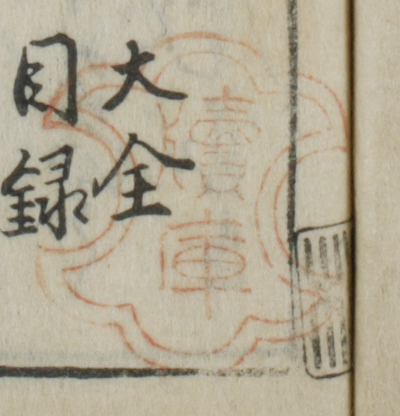 大全
目録
讀庫